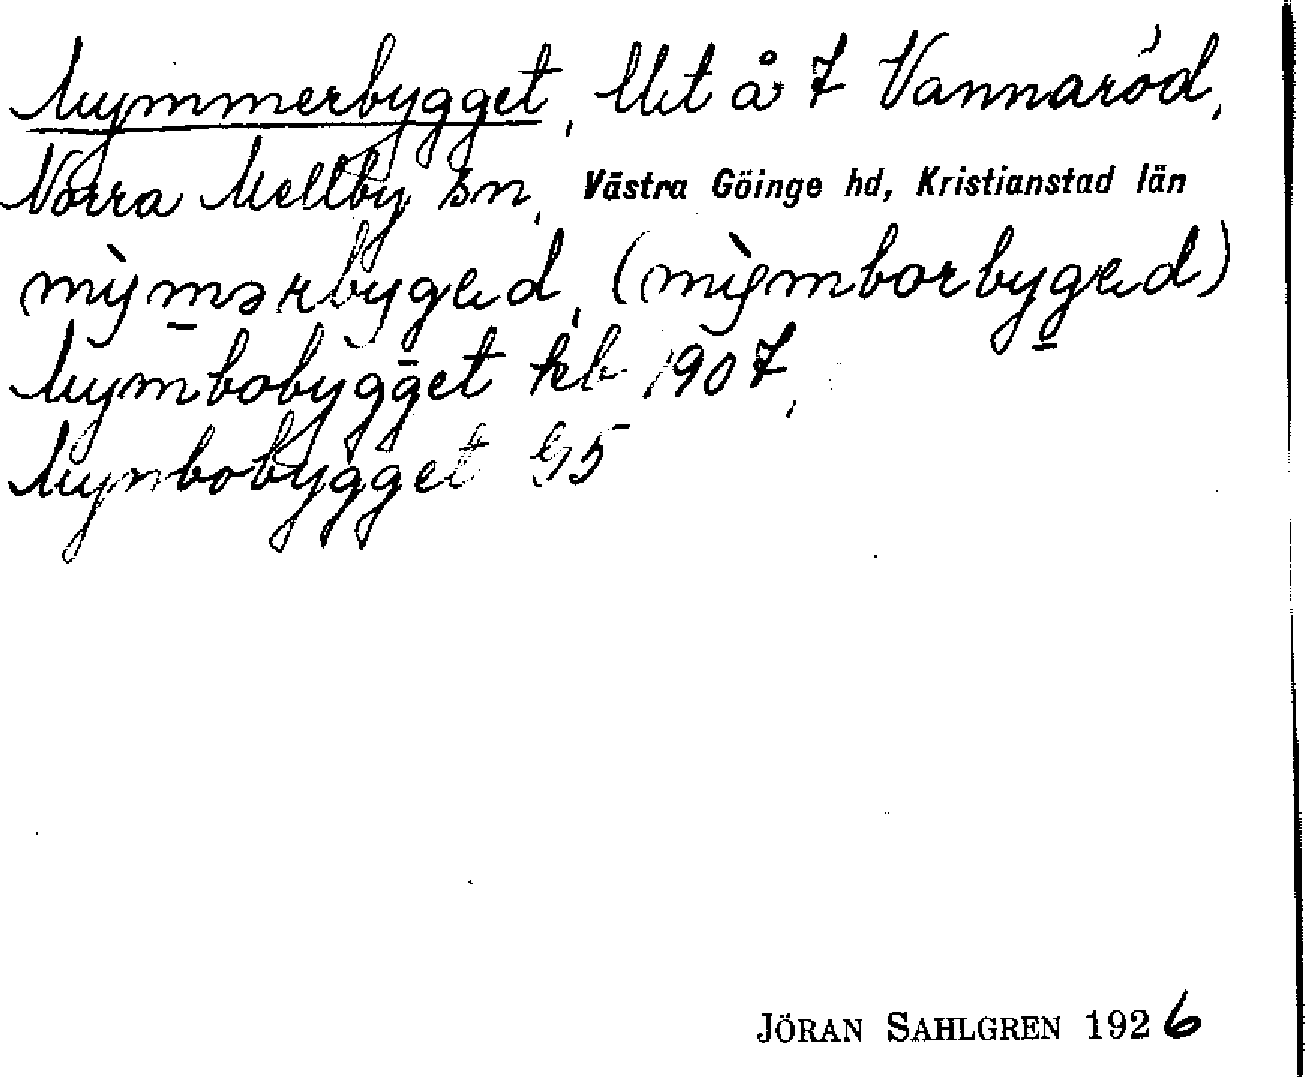 Mymmerbygget, Ut å 7 Vannaröd,
Norra Mellby sn, Västra Göinge hd, Kristianstad län
mỳmərbygəd, (mỳmborbygəd)
Mymbobygget kb 1907,
Mynbobygget G5
JÖRAN SAHLGREN 1926